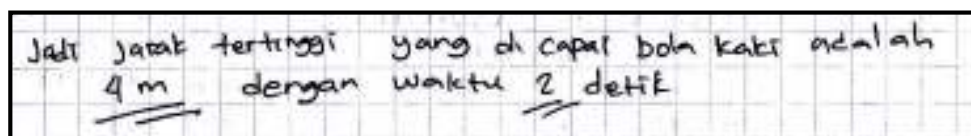 Jadi jarak tertinggi yang di capai bola kaki adalah
4 m dengan waktu 2 detik